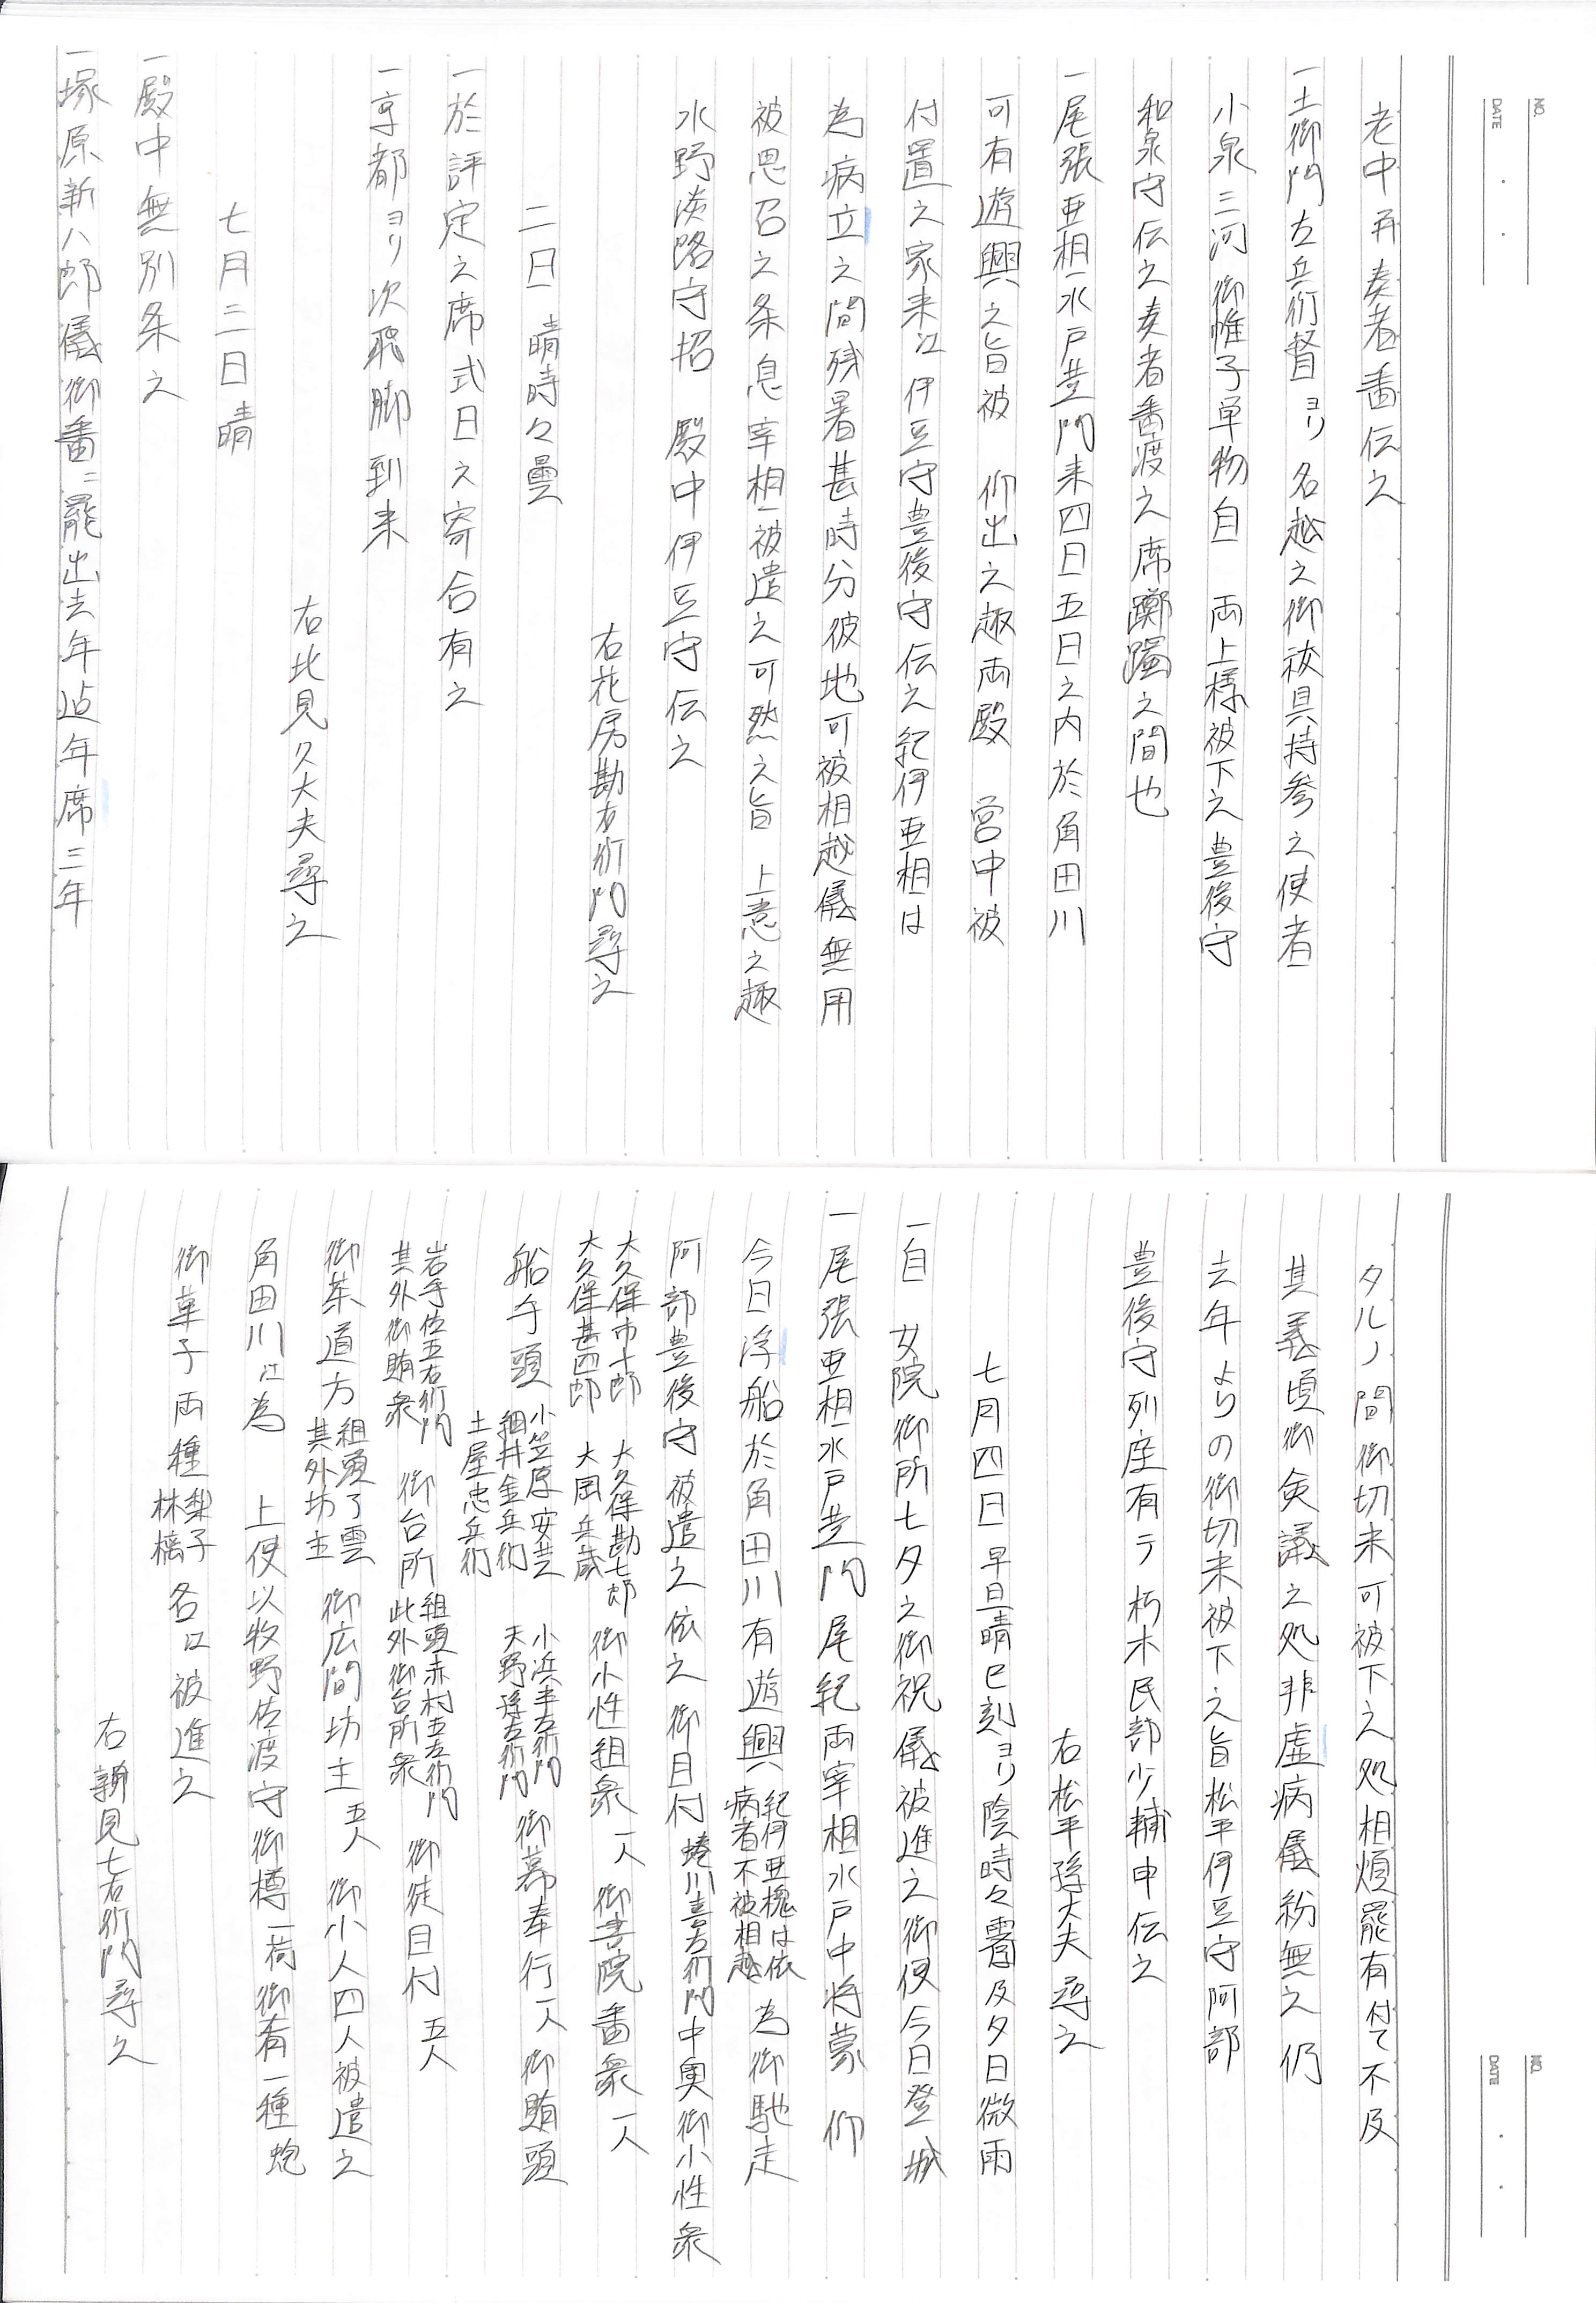 NO.
DATE
老中并奏者番伝之
一土御門左兵衛督ヨリ名越之御祓具持参之使者
小泉三河御帷子単物自 両上様被下之豊後守
和泉守伝之奏者番渡之席躑躅之間也
一尾張亜相水戸黄門来四日五日之内於角田川
可有遊興之旨被 仰出之趣両殿 営中被
付置之家来江伊豆守豊後守伝之紀伊亜相は
為病立之間残暑甚時分彼地可被相越儀無用
被思召之条息宰相被遣之可然之旨 上意之趣
水野淡路守招 殿中伊豆守伝之
右花房勘右衛門尋之
二日 晴時々曇
一於評定之席式日之寄合有之
一京都ヨリ次飛脚到来
右北見久大夫尋之
七月三日晴
一殿中無別条之
一塚原新八郎儀御番ニ罷出去年迠年席三年
NO.
DATE
タルノ間御切米可被下之処相煩罷有付て不及
其義頃御僉議之処非虚病儀紛無之仍
去年よりの御切米被下之旨松平伊豆守阿部
豊後守列座有テ朽木民部少輔申伝之
右松平孫大夫尋之
七月四日早旦晴巳刻ヨリ陰時々霽及夕日微雨
一自 女院御所七夕之御祝儀被進之御使今日登城
一尾張亜相水戸黄門尾紀両宰相水戸中将蒙 仰
今日浮船於角田川有遊興紀伊亜槐は依病者不被相越為御馳走
阿部豊後守被遣之依之御目付蜷川喜右衛門中奥御小性衆
大久保市十郎大久保甚四郎 大久保勘七郎大岡兵蔵 御小性組衆一人御書院番衆一人
船手頭小笠原安芸細井金兵衛土屋忠兵衛 小浜半右衛門天野孫左衛門 御幕奉行一人御賄頭
岩手佐五右衛門其外御賄衆 御台所組頭赤村五左衛門此外御台所衆 御徒目付五人
御茶道方組頭了雲其外坊主 御広間坊主五人 御小人四人被遣之
角田川江為 上使以牧野佐渡守御樽一荷御肴一種蚫
御菓子両種梨子林檎各江被進之
右新見七右衛門尋之